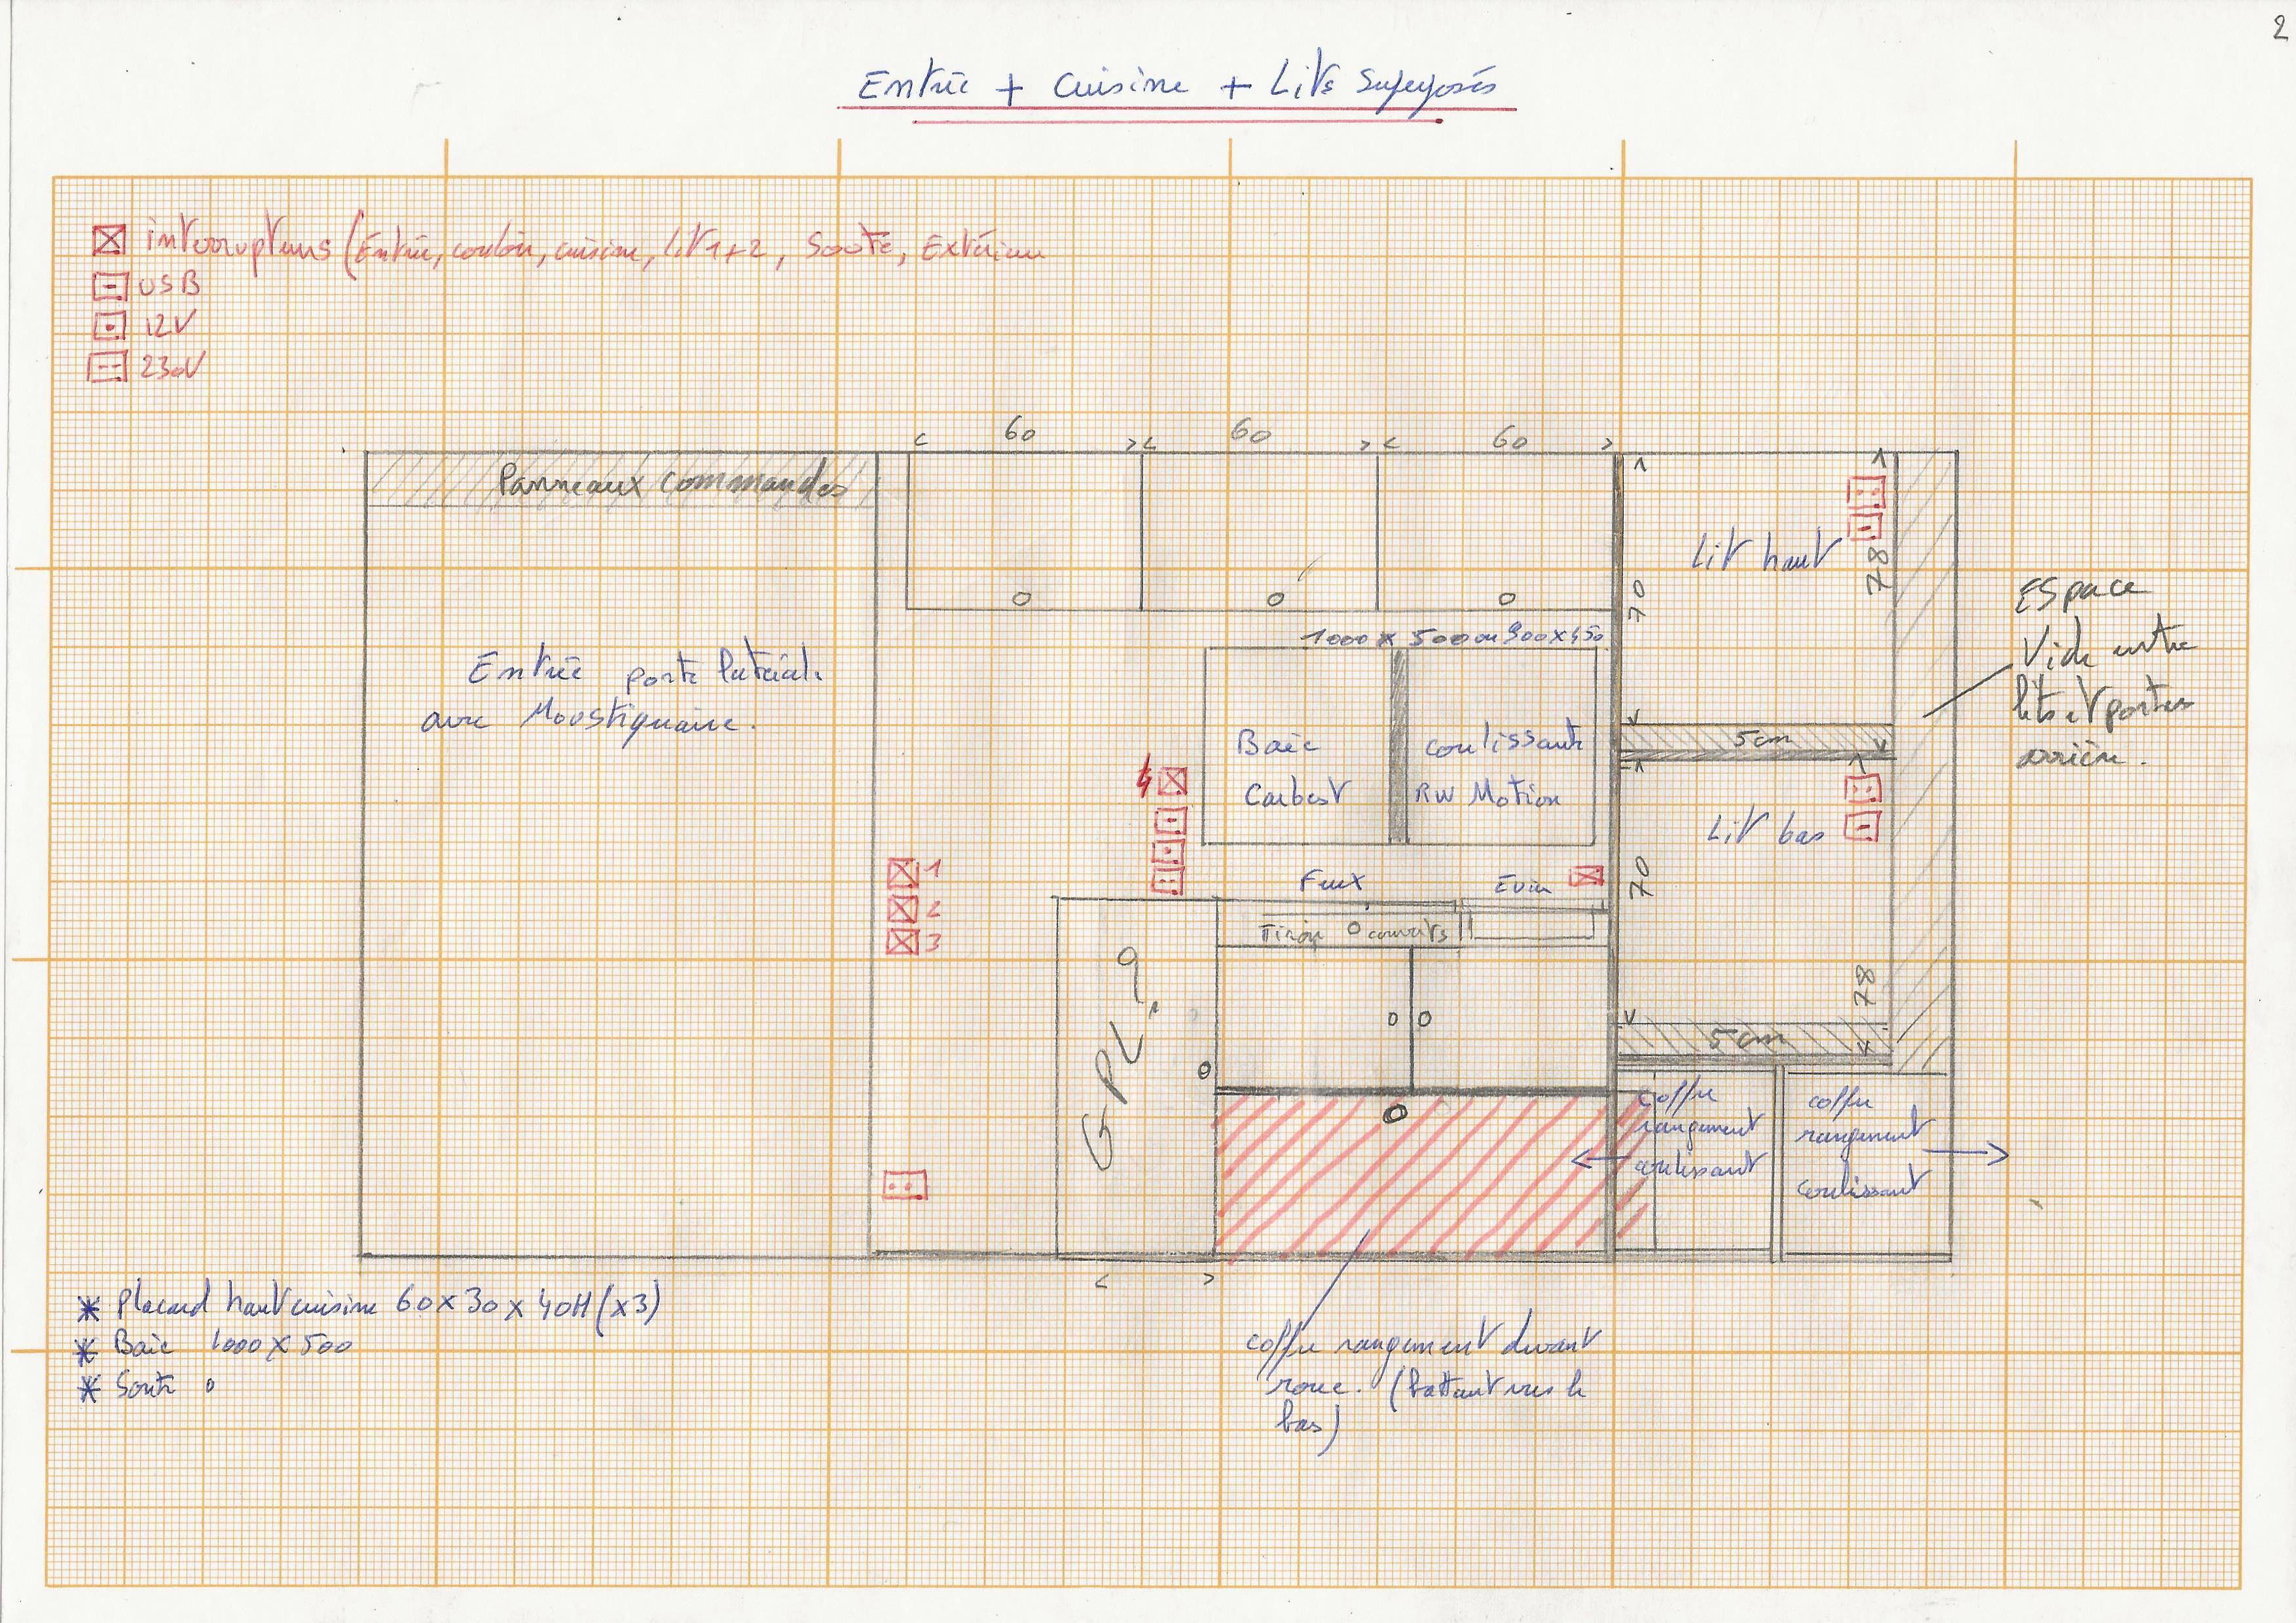 2
Entrée + Cuisine + Lits Superposés
interrupteurs (Entrée, couloir, cuisine, lit 1+2, Soute, Extérieur
USB
12V
230V
60 60 60
Panneaux commandes
Lit haut
78
70
Espace
Vide entre
lits et portes
arrière.
1000 x 500 ou 900x450
Entrée porte latérale
avec Moustiquaire.
Baie coulissante
Carbest RW Motion
5cm
Lit bas
70
78
1
2
3
Feux Evier
Tiroir couverts
GPL ?
5cm
coffre
rangement
coulissant
coffre
rangement
coulissant
* Placard haut cuisine 60x30x40H (x3)
* Baie 1000 x 500
* Soute
coffre rangement devant
roue. (battant vers le
bas)